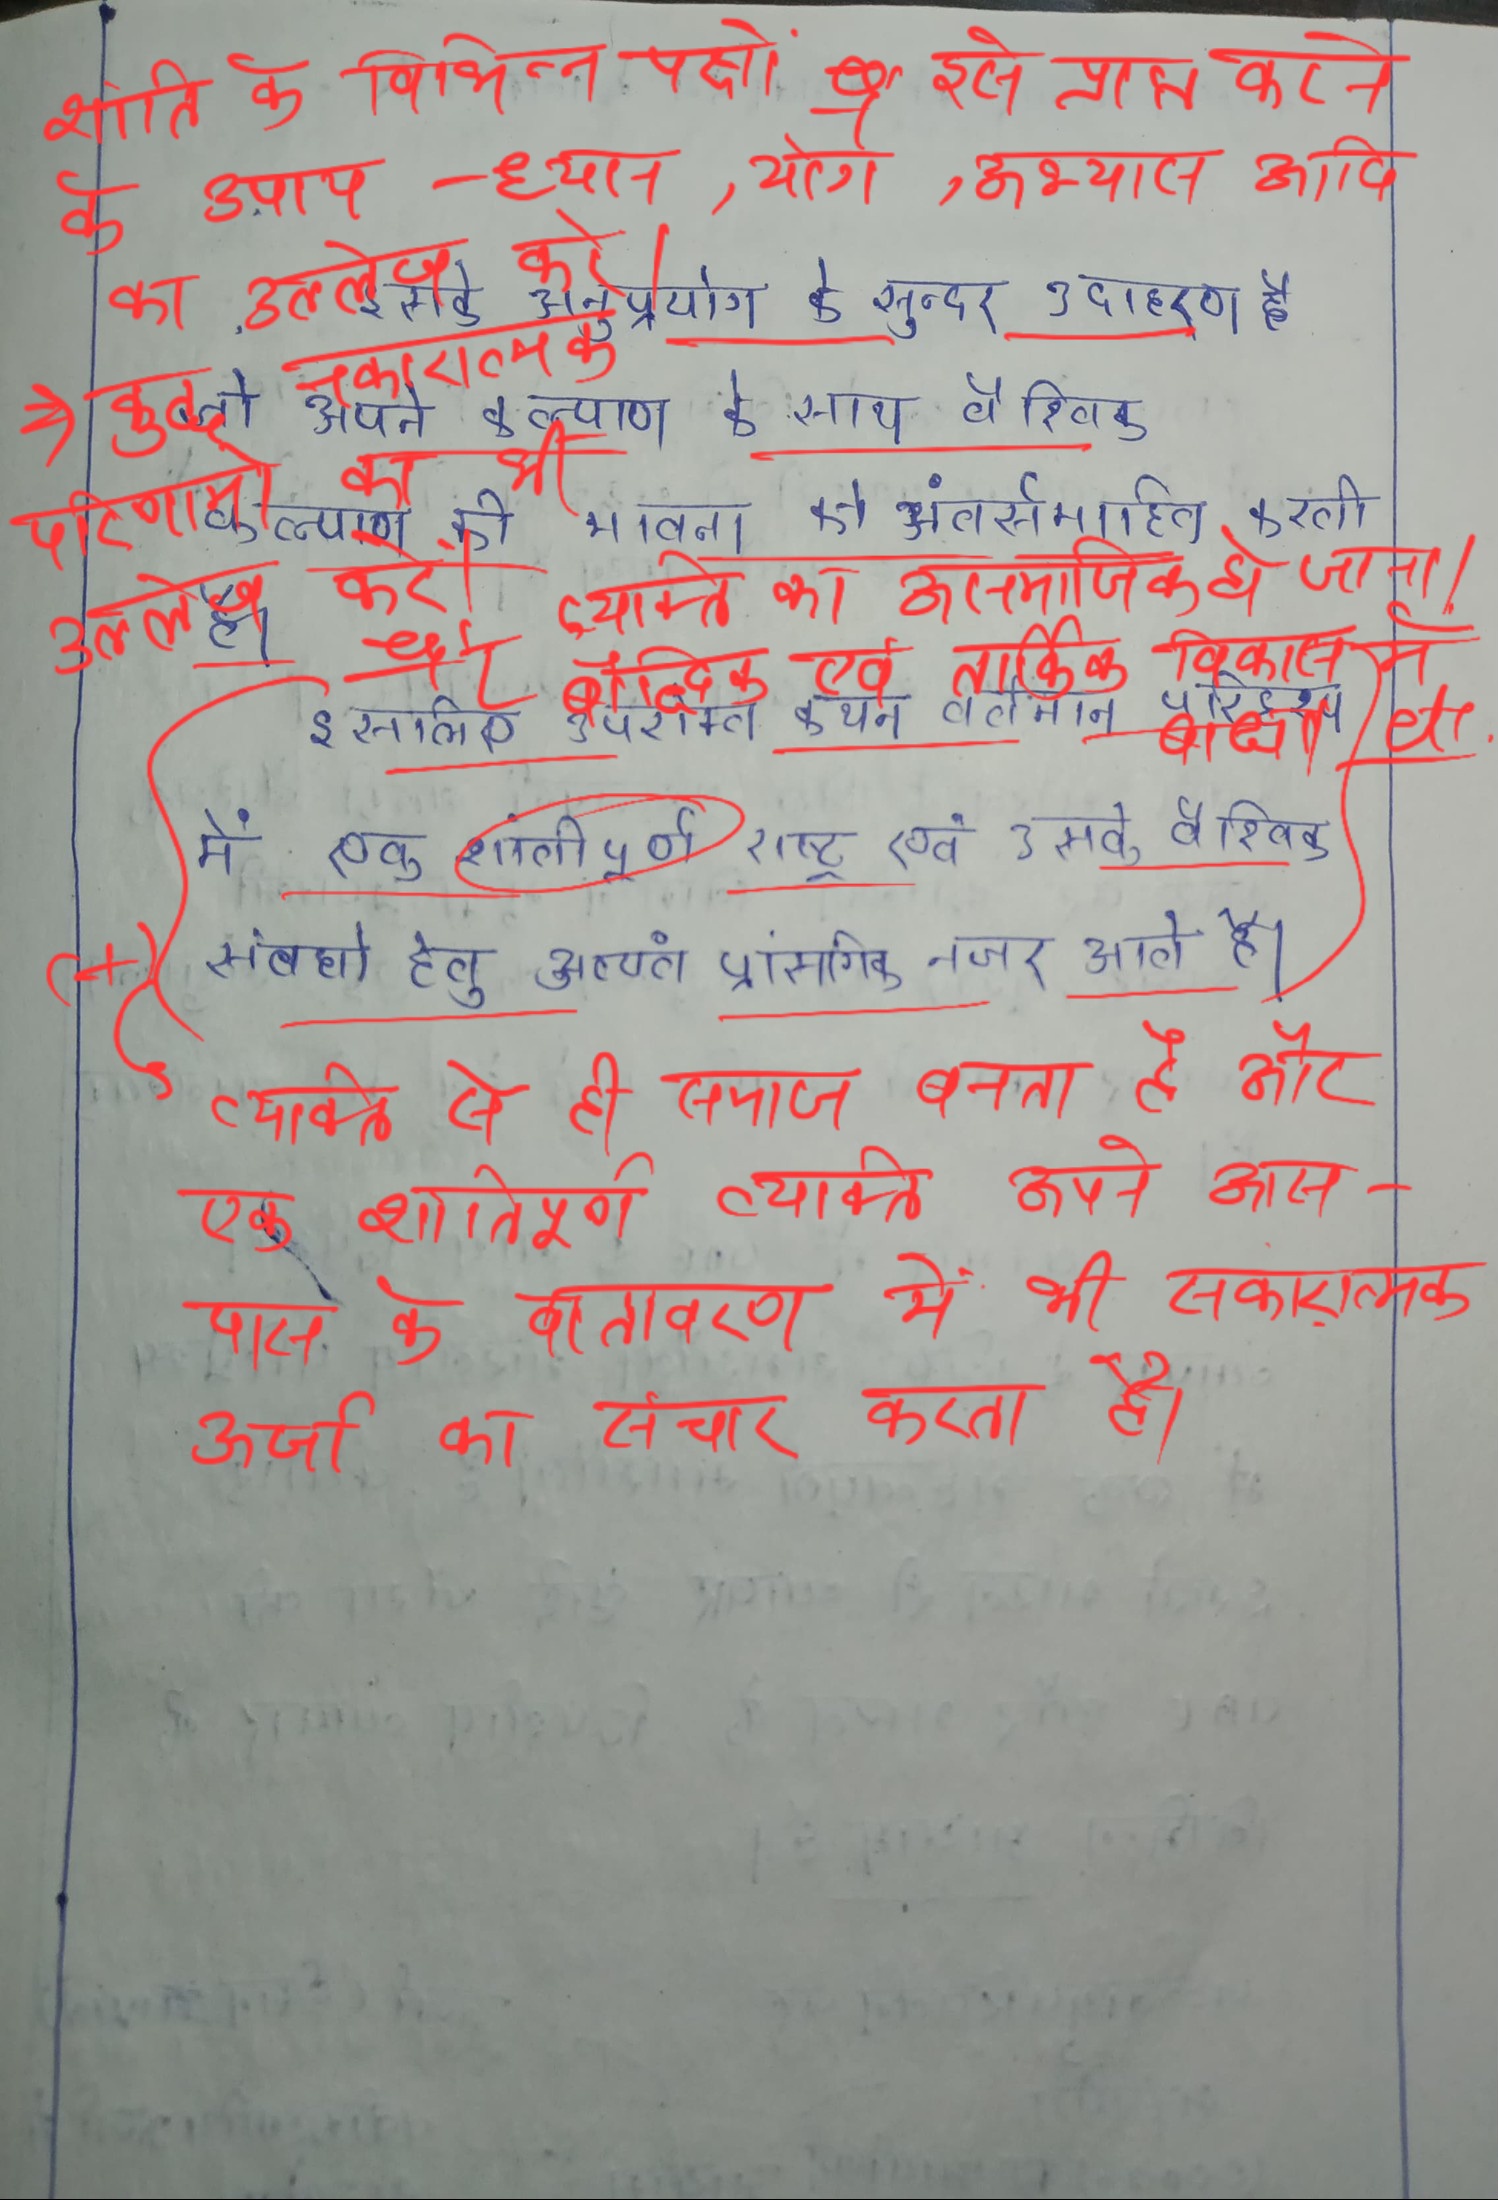 शांति के विभिन्न पक्षों व इसे प्राप्त करने
के उपाय - ध्यान, योग, अभ्यास आदि
का उल्लेख करें।
इसके अनुप्रयोग के सुन्दर उदाहरण है
⇒ कुछ नकारात्मक
जो अपने कल्याण के साथ वैश्विक
परिणामों का भी
कल्याण की भावना को अंतर्समाहित करती
उल्लेख करें।
व्यक्ति का असमाजिक हो जाना।
है।
बौद्धिक एवं तार्किक विकास में
बाधा
इसलिए उपरोक्त कथन वर्तमान परिदृश्य
में एक शांतीपूर्ण राष्ट्र एवं उसके वैश्विक
(+)
संबधो हेतु अत्यंत प्रांसगिक नजर आते है।
व्यक्ति से ही समाज बनता है और
एक शांतिपूर्ण व्यक्ति अपने आस-
पास के वातावरण में भी सकारात्मक
ऊर्जा का संचार करता है।